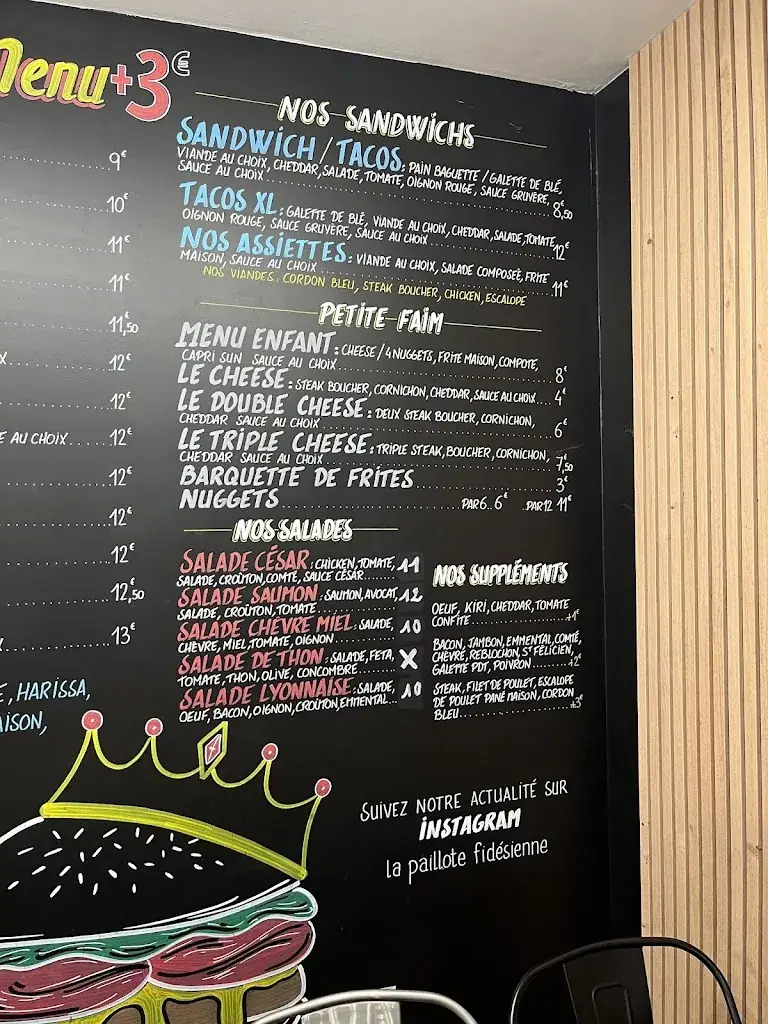 Menu+3€
9€
10€
11€
11€
11,50
X 12€
12€
E AU CHOIX......12€
12€
12€
12€
12,50
X 13€
E, HARISSA,
AISON,
NOS SANDWICHS
SANDWICH / TACOS: PAIN BAGUETTE / GALETTE DE BLÉ,
VIANDE AU CHOIX, CHEDDAR, SALADE, TOMATE, OIGNON ROUGE, SAUCE GRUYÈRE,
SAUCE AU CHOIX 8,50
TACOS XL: GALETTE DE BLÉ, VIANDE AU CHOIX, CHEDDAR, SALADE, TOMATE,
OIGNON ROUGE, SAUCE GRUYÈRE, SAUCE AU CHOIX 12€
NOS ASSIETTES: VIANDE AU CHOIX, SALADE COMPOSÉE, FRITE
MAISON, SAUCE AU CHOIX 11€
NOS VIANDES: CORDON BLEU, STEAK BOUCHER, CHICKEN, ESCALOPE
PETITE FAIM
MENU ENFANT: CHEESE / 4 NUGGETS, FRITE MAISON, COMPOTE,
CAPRI SUN SAUCE AU CHOIX 8€
LE CHEESE: STEAK BOUCHER, CORNICHON, CHEDDAR, SAUCE AU CHOIX... 4€
LE DOUBLE CHEESE: DEUX STEAK BOUCHER, CORNICHON,
CHEDDAR SAUCE AU CHOIX 6€
LE TRIPLE CHEESE: TRIPLE STEAK, BOUCHER, CORNICHON,
CHEDDAR SAUCE AU CHOIX 7,50
BARQUETTE DE FRITES 3€
NUGGETS PAR 6.. 6€ PAR 12 11€
NOS SALADES
SALADE CÉSAR: CHICKEN, TOMATE, 11
SALADE, CROÛTON, COMTÉ, SAUCE CÉSAR
SALADE SAUMON: SAUMON, AVOCAT, 12
SALADE, CROÛTON, TOMATE
SALADE CHÈVRE MIEL: SALADE, 10
CHÈVRE, MIEL, TOMATE, OIGNON
SALADE DE THON: SALADE, FETA, X
TOMATE, THON, OLIVE, CONCOMBRE
SALADE LYONNAISE: SALADE, 10
OEUF, BACON, OIGNON, CROÛTON, EMMENTAL...
NOS SUPPLÉMENTS
OEUF, KIRI, CHEDDAR, TOMATE
CONFITE +1€
BACON, JAMBON, EMMENTAL, COMTÉ,
CHÈVRE, REBLOCHON, ST FÉLICIEN,
GALETTE PDT, POIVRON +2€
STEAK, FILET DE POULET, ESCALOPE
DE POULET PANÉ MAISON, CORDON
BLEU +3€
SUIVEZ NOTRE ACTUALITÉ SUR
INSTAGRAM
la paillote fidésienne